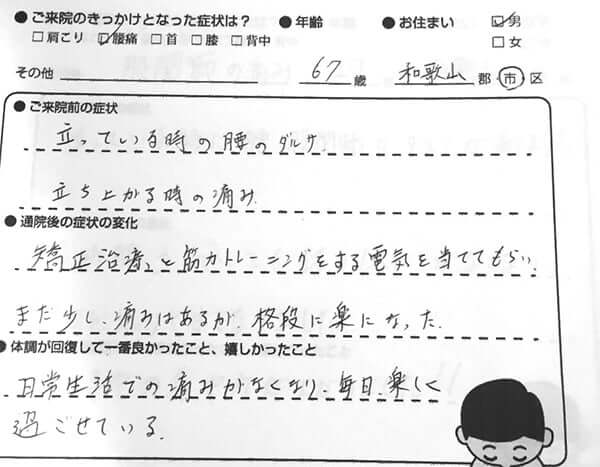 ●ご来院のきっかけとなった症状は？ ●年齢 ●お住まい ☑男
□肩こり ☑腰痛 □首 □膝 □背中 □女
その他 67歳 和歌山 郡・市・区
●ご来院前の症状
立っている時の腰のダルサ
立ち上がる時の痛み
●通院後の症状の変化
矯正治療と筋力トレーニングをする電気を当ててもらい、
まだ少し、痛みはあるが、格段に楽になった。
●体調が回復して一番良かったこと、嬉しかったこと
日常生活での痛みがなくなり、毎日、楽しく
過ごせている。